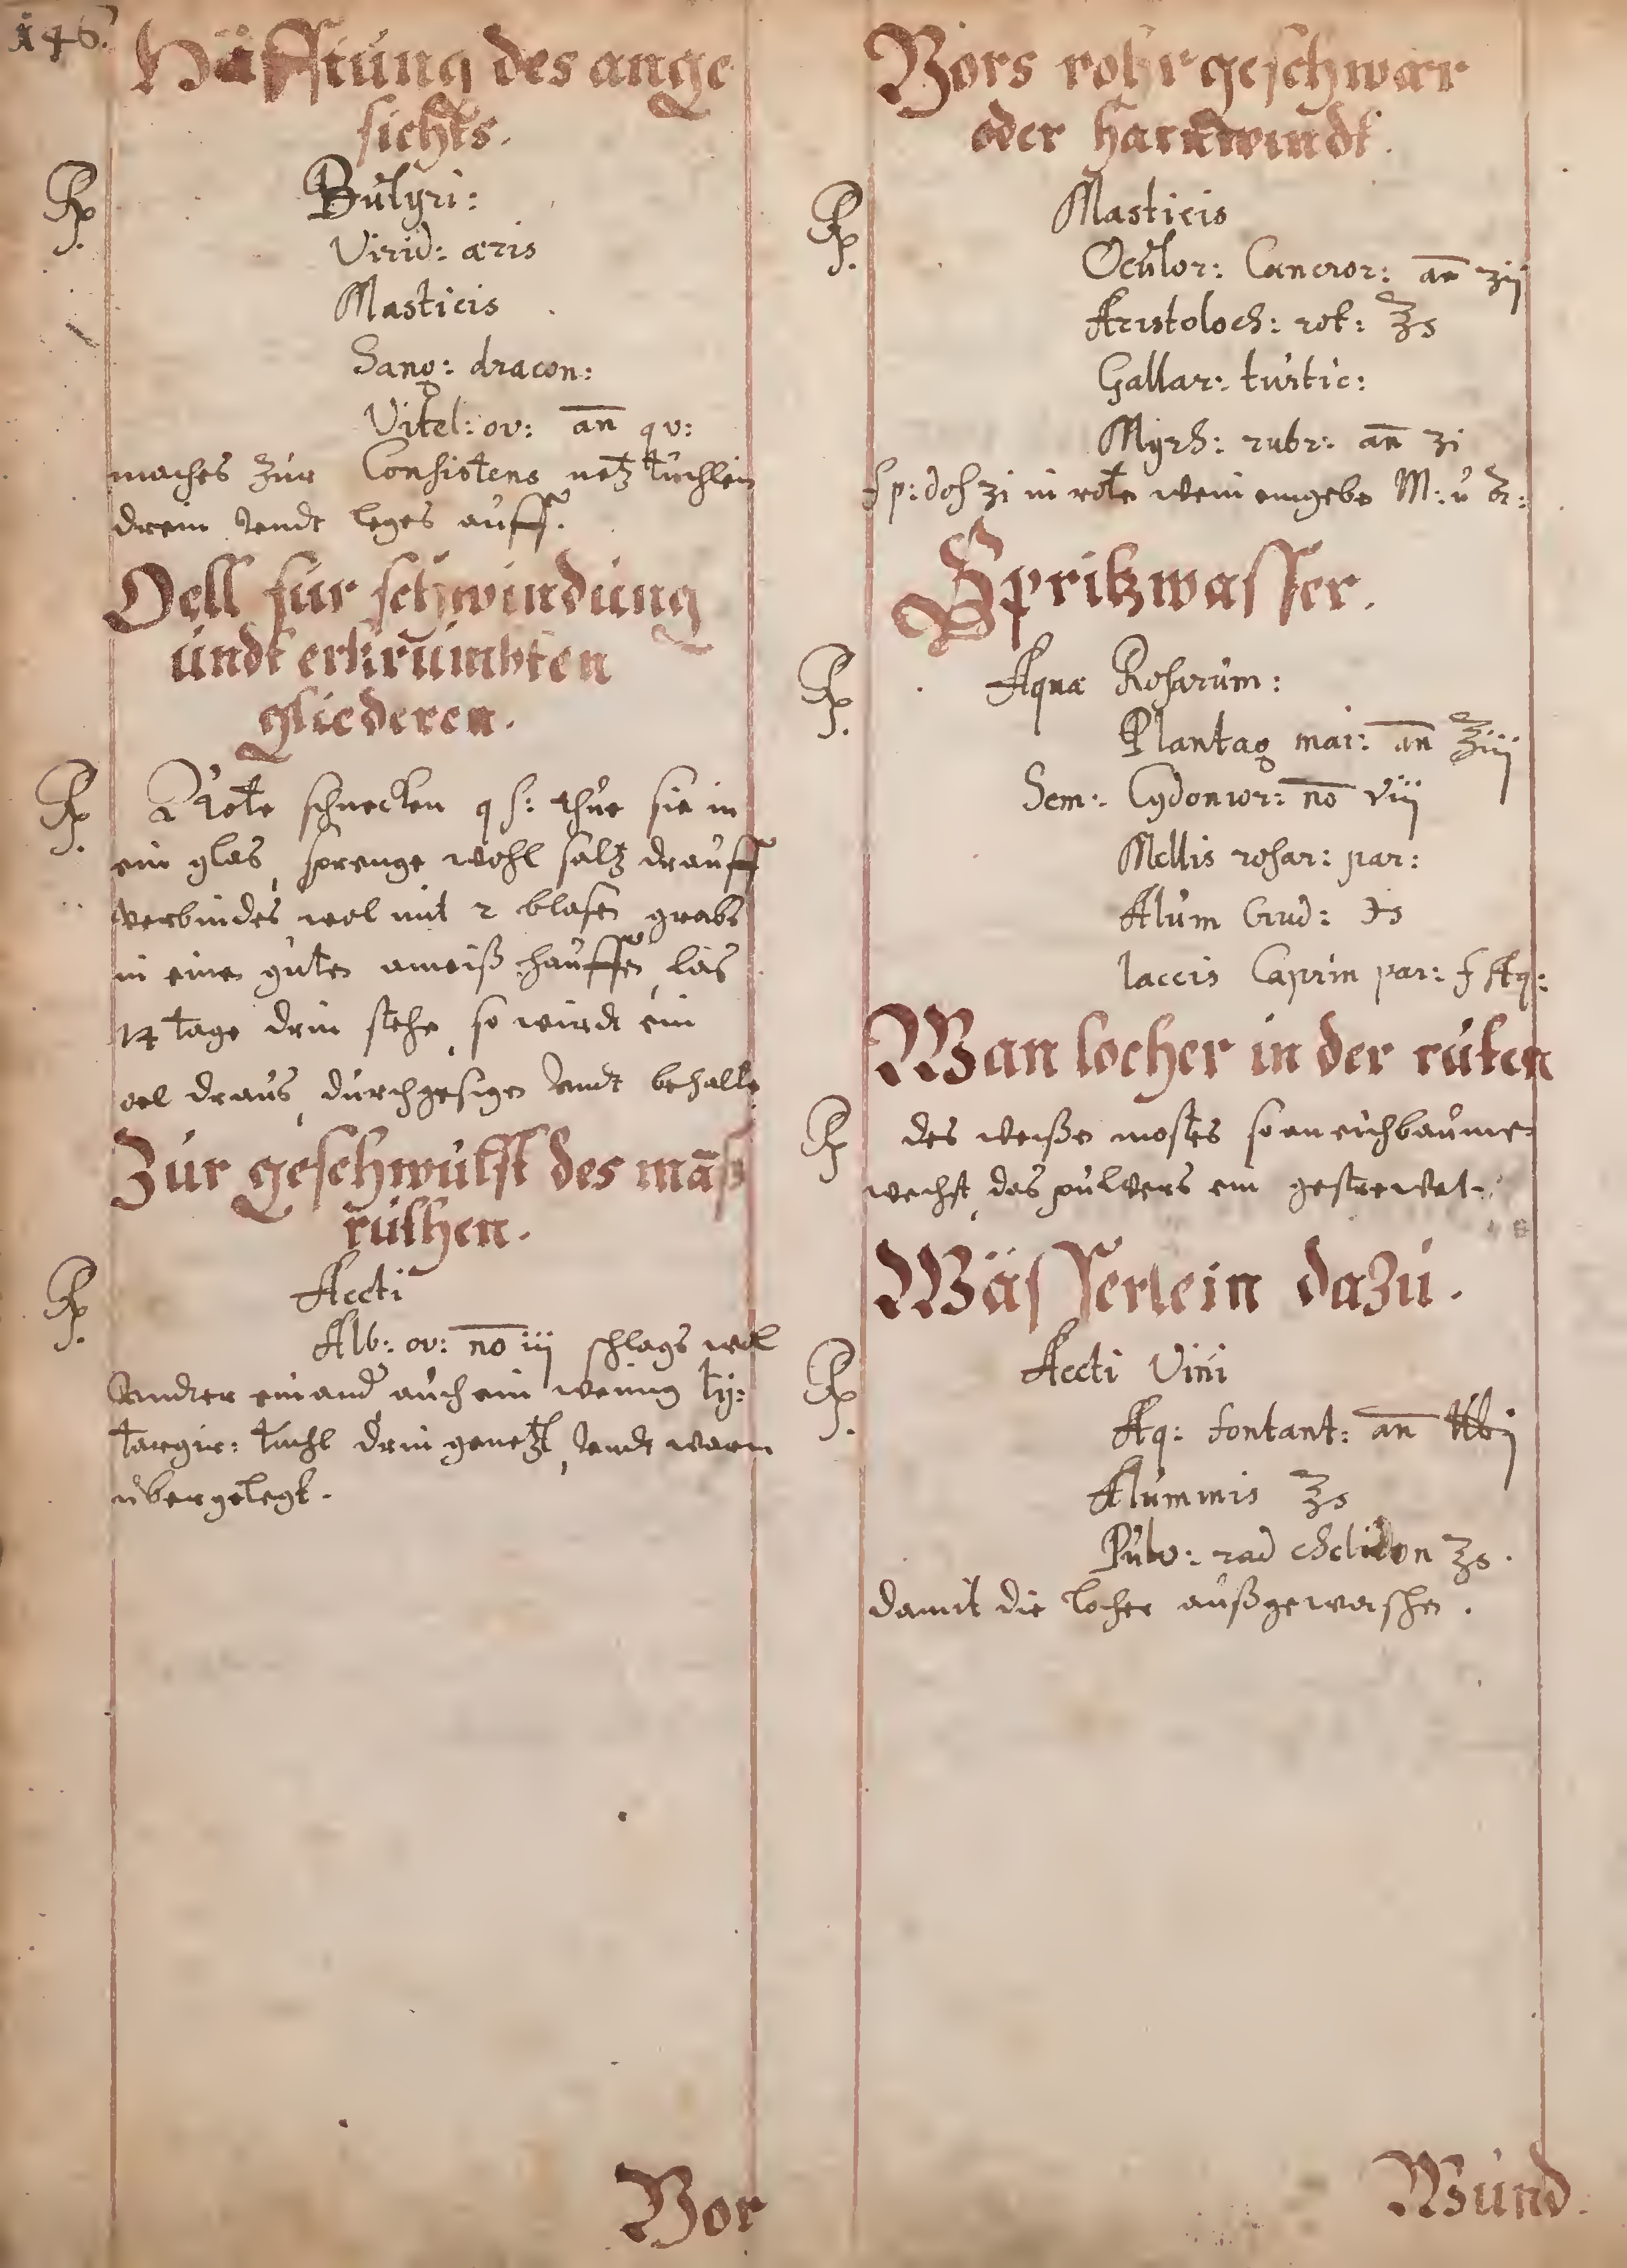 146.
Häfftung des ange
sichts.
Rp. Butyri:
Virid: æris
Masticis
Sang: dracon:
Vitel: ov: an̄ qv:
maches zur Consistens netz tuchlein
drein undt leges auff.
Oell fur schwindung
undt erkrumbten
gliederen.
Rp. Rote schnecken q s: thue sie in
ein glas, sprenge wohl saltz drauff
verbindes wol mit 2 blasen grabs
in einen guten ameiß hauffen, las
14 tage drin stehe, so wirdt ein
oel draus, durchgesigen undt behalte
Zur geschwulst des mañs
ruthen.
Rp. Aceti
Alb: ov: no iij schlags wol
undter einand auch ein wenig ly:
targir: tuchl drin genetzt, undt warm
übergelegt.
Vor
Vors rohrgeschwar
oder harnwindt.
Rp. Masticis
Oculor: Cancror: an̄ ʒij
Aristoloch: rot: ℥s
Gallar: turtic:
Myrh: rubr: an̄ ʒi
f p: dos ʒi in rote wein eingebe M: u
Spritzwasser.
Rp. Aquæ Rosarum:
Plantag mai: an̄ ℥iij
Sem: Cydonior: no viij
Mellis rosar: par:
Alum Crud: ℈s
laccis Caprin par: f Aq:
Wan locher in der ruten
Rp des weißen mostes so an eichbaume
wechst, das pulvers ein gestrewet.
Wässerlein dazu.
Rp. Aceti Vini
Aq: fontant: an̄ ℔j
Aluminis ℥s
Pulv: rad chelidon ʒs.
damit die locher außgewaschen.
Wund.